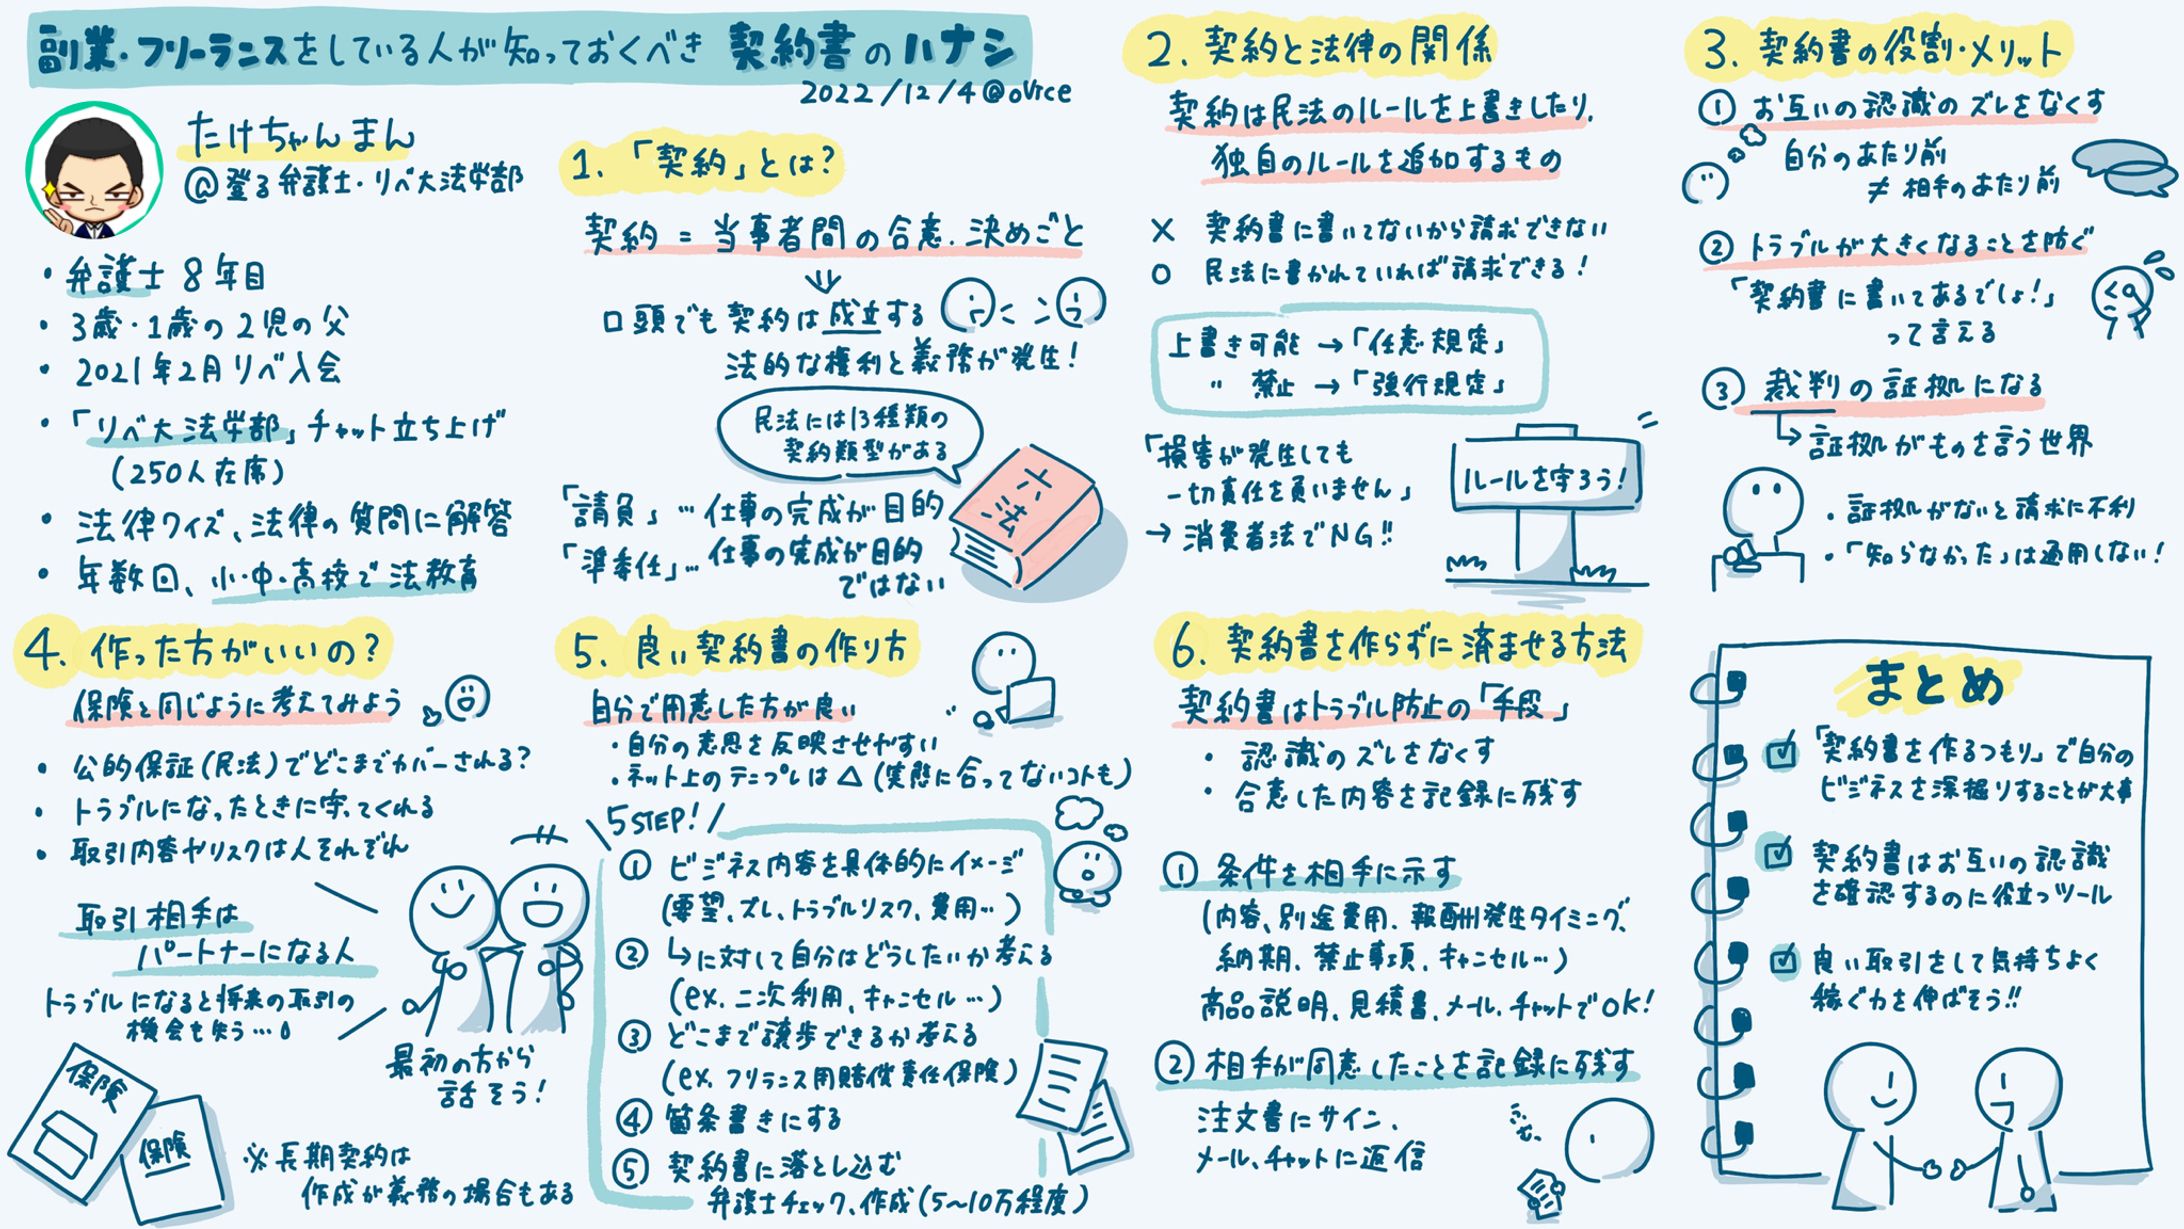 副業・フリーランスをしている人が知っておくべき 契約書のハナシ
2022/12/4@oVice
たけちゃんまん
@登る弁護士・リベ大法学部
・弁護士 8年目
・3歳・1歳の2児の父
・2021年2月リベ入会
・「リベ大法学部」チャット立ち上げ
(250人在席)
・法律クイズ、法律の質問に解答
・年数回、小・中・高校で法教育
1.「契約」とは?
契約=当事者間の合意、決めごと
口頭でも契約は成立する
法的な権利と義務が発生!
民法には13種類の
契約類型がある
六法
「請負」…仕事の完成が目的
「準委任」…仕事の完成が目的
ではない
2.契約と法律の関係
契約は民法のルールを上書きしたり、
独自のルールを追加するもの
× 契約書に書いてないから請求できない
○ 民法に書かれていれば請求できる!
上書き可能→「任意規定」
〃 禁止→「強行規定」
「損害が発生しても
一切責任を負いません」
→消費者法でNG!!
ルールを守ろう!
3.契約書の役割・メリット
① お互いの認識のズレをなくす
自分のあたり前
≠相手のあたり前
② トラブルが大きくなることを防ぐ
「契約書に書いてあるでしょ!」
って言える
③ 裁判の証拠になる
↳証拠がものを言う世界
・証拠がないと請求に不利
・「知らなかった」は通用しない!
4.作った方がいいの?
保険と同じように考えてみよう
・公的保証(民法)でどこまでカバーされる?
・トラブルになったときに守ってくれる
・取引内容やリスクは人それぞれ
取引相手は
パートナーになる人
トラブルになると将来の取引の
機会も失う…。
最初の方から
話そう!
保険
保険
※長期契約は
作成が義務の場合もある
5.良い契約書の作り方
自分で用意した方が良い
・自分の意思を反映させやすい
・ネット上のテンプレは△(実態に合ってないコトも)
5STEP!
① ビジネス内容を具体的にイメージ
(要望、ズレ、トラブルリスク、費用…)
② ↳に対して自分はどうしたいか考える
(ex.二次利用、キャンセル…)
③ どこまで譲歩できるか考える
(ex.フリランス用賠償責任保険)
④ 箇条書きにする
⑤ 契約書に落とし込む
弁護士チェック、作成(5〜10万程度)
6.契約書を作らずに済ませる方法
契約書はトラブル防止の「手段」
・認識のズレをなくす
・合意した内容を記録に残す
① 条件を相手に示す
(内容、別途費用、報酬発生タイミング、
納期、禁止事項、キャンセル…)
商品説明、見積書、メール、チャットでOK!
② 相手が同意したことを記録に残す
注文書にサイン、
メール、チャットに返信
まとめ
「契約書を作るつもり」で自分の
ビジネスを深掘りすることが大事
契約書はお互いの認識
を確認するのに役立つツール
良い取引をして気持ちよく
稼ぐ力を伸ばそう!!